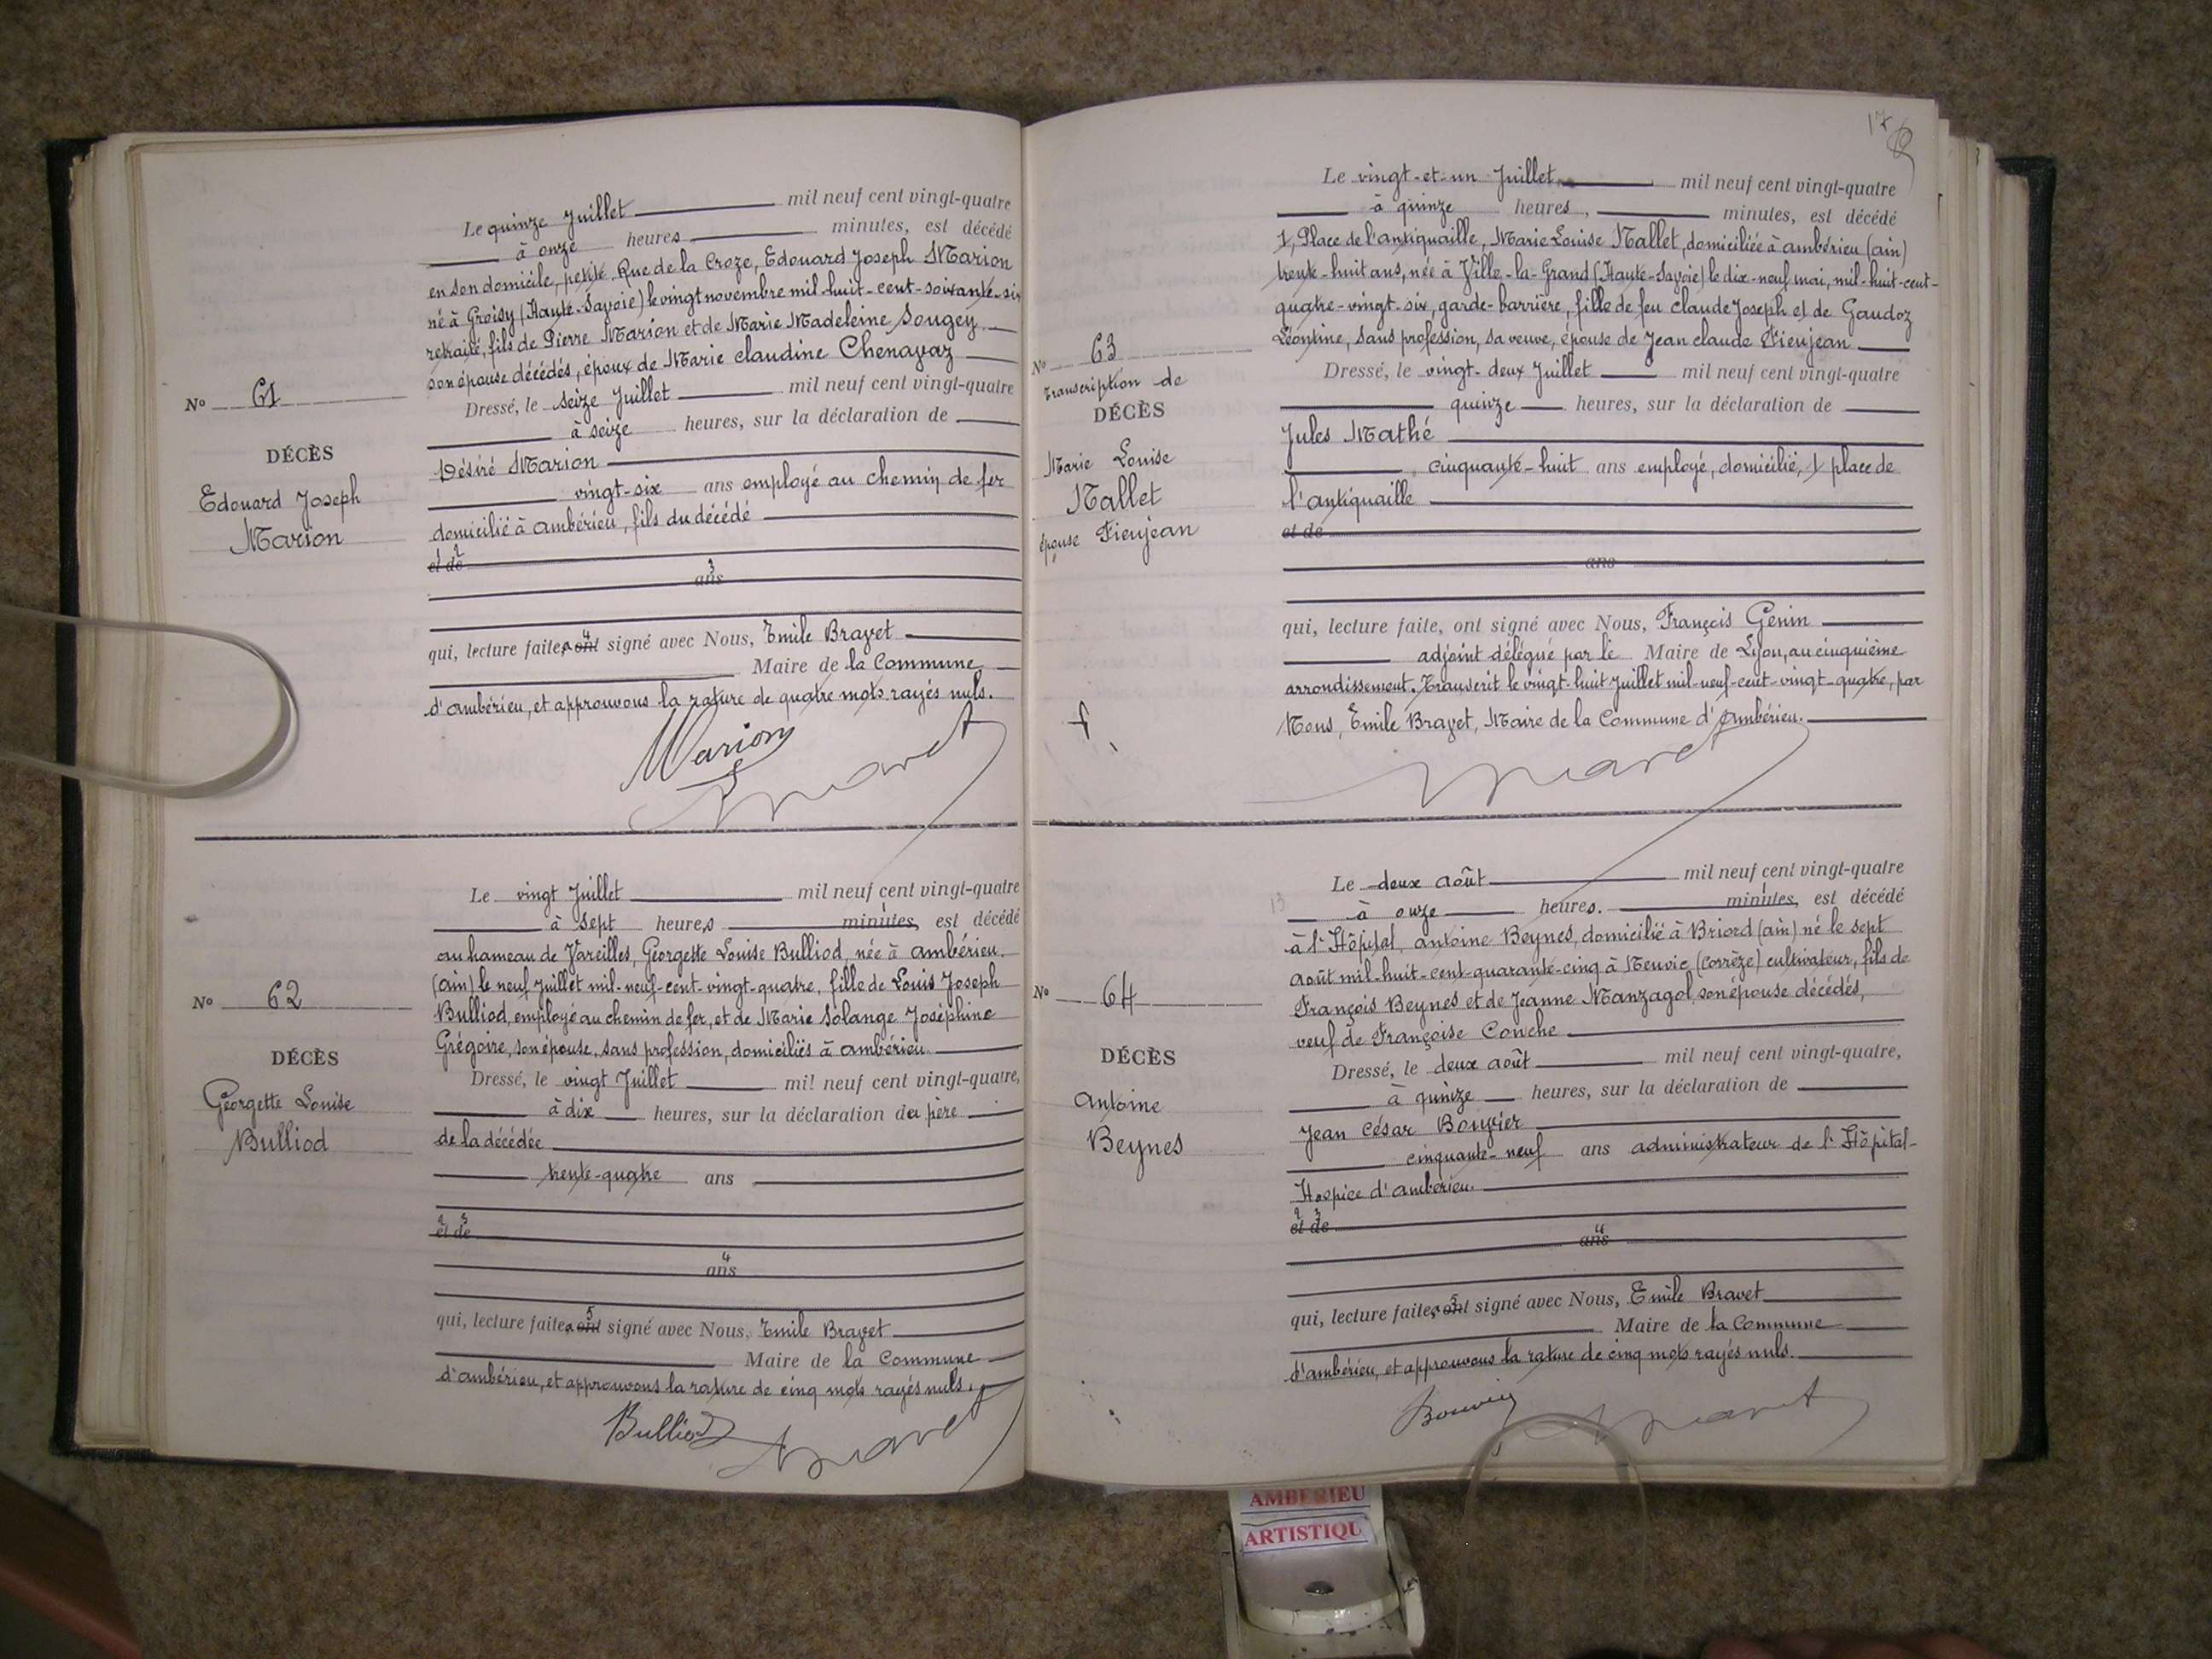 Le quinze Juillet mil neuf cent vingt-quatre
à onze heures minutes, est décédé
en son domicile, petite Rue de la Croze, Edouard Joseph Marion
né à Groisy (Haute-Savoie) le vingt novembre mil-huit-cent-soixante-six
retraité, fils de Pierre Marion et de Marie Madeleine Sougey
son épouse décédés, époux de Marie claudine Chenavaz
No 61
DÉCÈS
Edouard Joseph
Marion
Dressé, le seize Juillet mil neuf cent vingt-quatre
à seize heures, sur la déclaration de
Désiré Marion
vingt-six ans employé au chemin de fer
domicilié à ambérieu, fils du décédé
et de
ans
qui, lecture faite, a ont signé avec Nous, Emile Bravet
Maire de la Commune
d'ambérieu, et approuvons la rature de quatre mots rayés nuls.
Marion
Bravet
Le vingt Juillet mil neuf cent vingt-quatre
à sept heures minutes, est décédé
au hameau de Vareilles, Georgette Louise Bulliod, née à ambérieu
(ain) le neuf Juillet mil-neuf-cent-vingt-quatre, fille de Louis Joseph
Bulliod, employé au chemin de fer, et de Marie Solange Joséphine
Grégoire, son épouse, sans profession, domiciliés à ambérieu.
No 62
DÉCÈS
Georgette Louise
Bulliod
Dressé, le vingt Juillet mil neuf cent vingt-quatre,
à dix heures, sur la déclaration du père
de la décédée
trente-quatre ans
et de
ans
qui, lecture faite, a ont signé avec Nous, Emile Bravet
Maire de la Commune
d'ambérieu, et approuvons la rature de cinq mots rayés nuls.
Bulliod
Bravet
Le vingt-et-un Juillet mil neuf cent vingt-quatre
à quinze heures, minutes, est décédé
1, Place de l'antiquaille, Marie Louise Nallet, domiciliée à ambérieu (ain)
trente-huit ans, née à Ville-la-Grand (Haute-Savoie) le dix-neuf mai, mil-huit-cent-
quatre-vingt-six, garde-barrière, fille de feu claude Joseph et de Gaudoz
Léontine, sans profession, sa veuve, épouse de Jean claude Fieujean
No 63
transcription de
DÉCÈS
Marie Louise
Nallet
épouse Fieujean
Dressé, le vingt-deux Juillet mil neuf cent vingt-quatre
quinze heures, sur la déclaration de
Jules Mathé
, cinquante-huit ans employé, domicilié, 1 place de
l'antiquaille
et de
ans
qui, lecture faite, ont signé avec Nous, François Génin
adjoint délégué par le Maire de Lyon, au cinquième
arrondissement. Transcrit le vingt-huit Juillet mil-neuf-cent-vingt-quatre, par
Nous, Emile Bravet, Maire de la Commune d'ambérieu.
Bravet
Le deux août mil neuf cent vingt-quatre
à onze heures. minutes, est décédé
à l'Hôpital, antoine Beynes, domicilié à Briord (ain) né le sept
août mil-huit-cent-quarante-cinq à Neuvic (corrèze) cultivateur, fils de
François Beynes et de Jeanne Manzagol son épouse décédés,
veuf de Françoise Conche
No 64
DÉCÈS
antoine
Beynes
Dressé, le deux août mil neuf cent vingt-quatre,
à quinze heures, sur la déclaration de
Jean César Bouvier
cinquante-neuf ans administrateur de l'Hôpital-
Hospice d'ambérieu.
et de
ans
qui, lecture faite, a ont signé avec Nous, Emile Bravet
Maire de la Commune
d'ambérieu, et approuvons la rature de cinq mots rayés nuls.
Bouvier
Bravet
AMBERIEU
ARTISTIQU